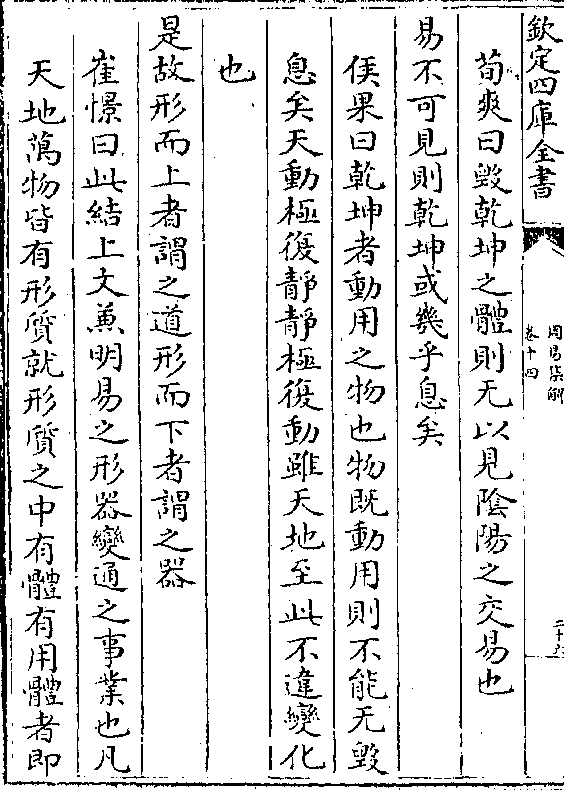 欽定四庫全書
周易集解
卷十四
二十六
荀爽曰毀乾坤之體則无以見陰陽之交易也
易不可見則乾坤或幾乎息矣
侯果曰乾坤者動用之物也物既動用則不能无毀
息矣天動極復靜靜極復動雖天地至此不違變化
也
是故形而上者謂之道形而下者謂之器
崔憬曰此結上文兼明易之形器變通之事業也凡
天地萬物皆有形質就形質之中有體有用體者即